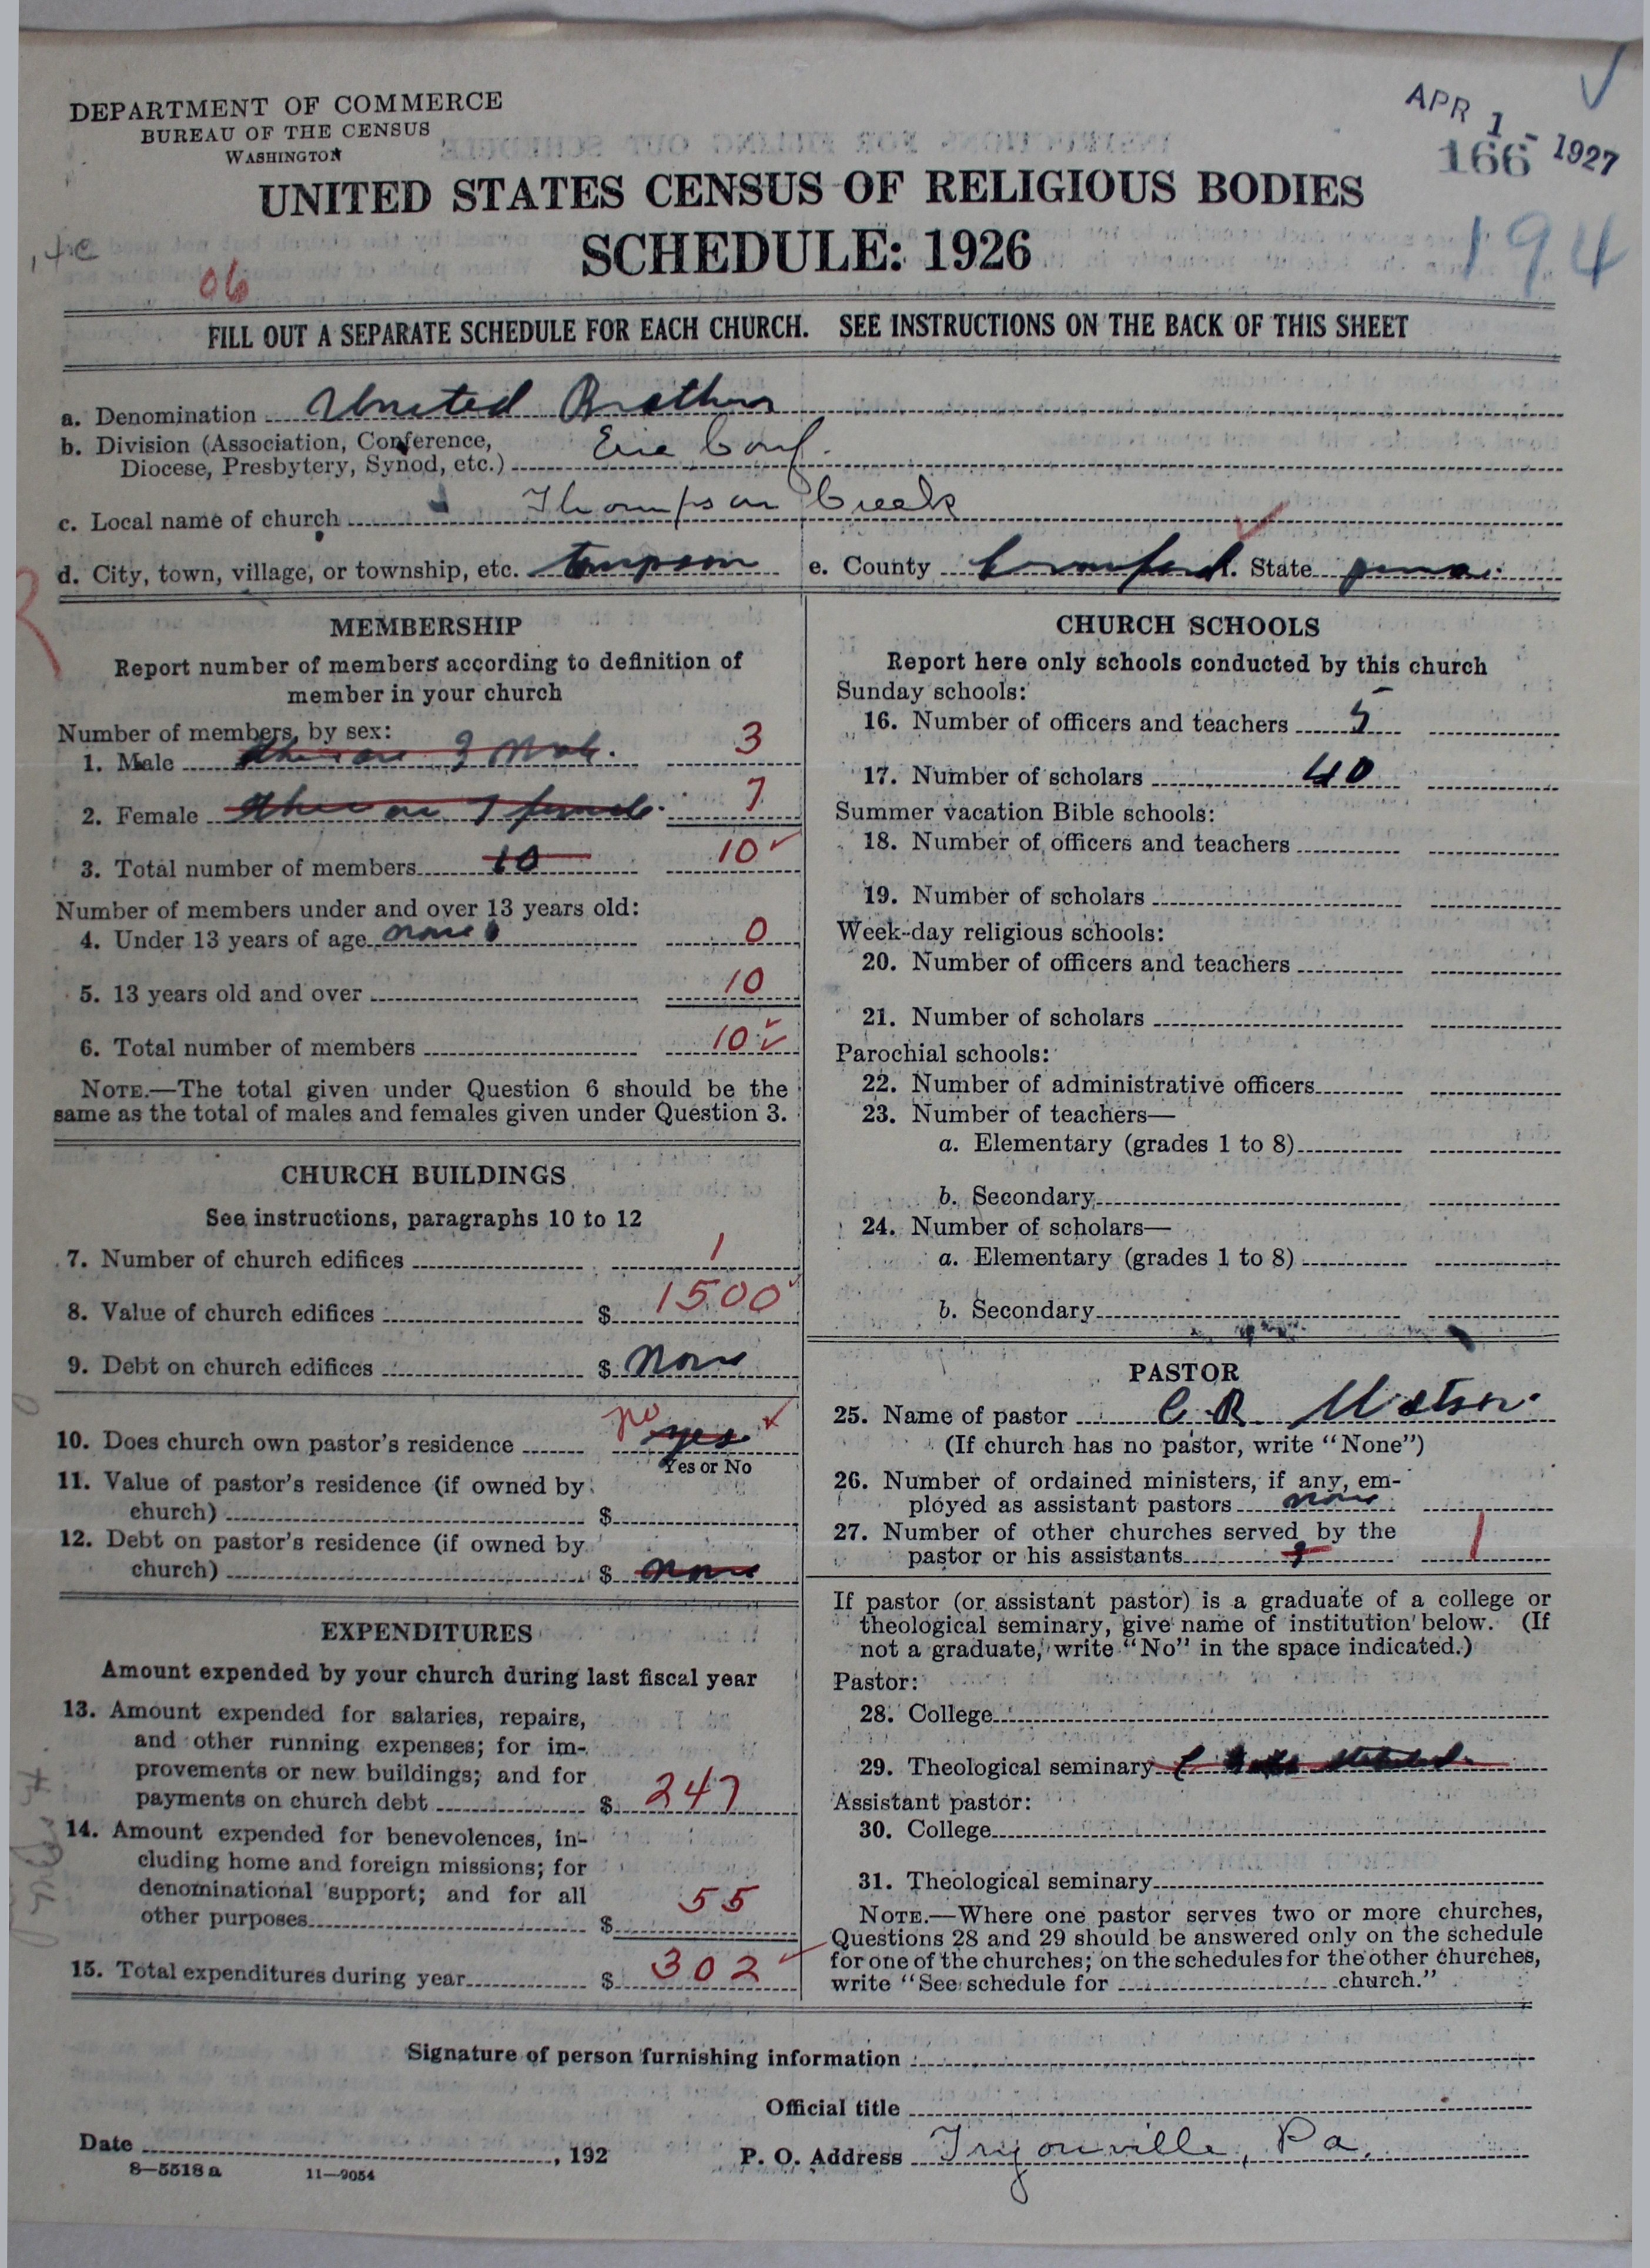 DEPARTMENT OF COMMERCE
BUREAU OF THE CENSUS
WASHINGTON
APR 1 - 1927
166
UNITED STATES CENSUS OF RELIGIOUS BODIES
SCHEDULE: 1926
194
06
FILL OUT A SEPARATE SCHEDULE FOR EACH CHURCH. SEE INSTRUCTIONS ON THE BACK OF THIS SHEET
a. Denomination United Brethren
b. Division (Association, Conference,
Diocese, Presbytery, Synod, etc.) Erie Conf.
c. Local name of church Thompson Creek
d. City, town, village, or township, etc. tompson e. County Crawford f. State penna.
MEMBERSHIP
Report number of members according to definition of
member in your church
Number of members, by sex:
1. Male 3
2. Female 7
3. Total number of members 10 10
Number of members under and over 13 years old:
4. Under 13 years of age none 0
5. 13 years old and over 10
6. Total number of members 10
NOTE.—The total given under Question 6 should be the
same as the total of males and females given under Question 3.
CHURCH BUILDINGS
See instructions, paragraphs 10 to 12
7. Number of church edifices 1
8. Value of church edifices $ 1500
9. Debt on church edifices $ none
10. Does church own pastor's residence no yes
Yes or No
11. Value of pastor's residence (if owned by
church) $
12. Debt on pastor's residence (if owned by
church) $ none
EXPENDITURES
Amount expended by your church during last fiscal year
13. Amount expended for salaries, repairs,
and other running expenses; for im-
provements or new buildings; and for
payments on church debt $ 247
14. Amount expended for benevolences, in-
cluding home and foreign missions; for
denominational support; and for all
other purposes $ 55
15. Total expenditures during year $ 302
CHURCH SCHOOLS
Report here only schools conducted by this church
Sunday schools:
16. Number of officers and teachers 5
17. Number of scholars 40
Summer vacation Bible schools:
18. Number of officers and teachers
19. Number of scholars
Week-day religious schools:
20. Number of officers and teachers
21. Number of scholars
Parochial schools:
22. Number of administrative officers
23. Number of teachers—
a. Elementary (grades 1 to 8)
b. Secondary
24. Number of scholars—
a. Elementary (grades 1 to 8)
b. Secondary
PASTOR
25. Name of pastor C R Watson
(If church has no pastor, write "None")
26. Number of ordained ministers, if any, em-
ployed as assistant pastors none
27. Number of other churches served by the
pastor or his assistants 1
If pastor (or assistant pastor) is a graduate of a college or
theological seminary, give name of institution below. (If
not a graduate, write "No" in the space indicated.)
Pastor:
28. College
29. Theological seminary
Assistant pastor:
30. College
31. Theological seminary
NOTE.—Where one pastor serves two or more churches,
Questions 28 and 29 should be answered only on the schedule
for one of the churches; on the schedules for the other churches,
write "See schedule for church."
Signature of person furnishing information
Official title
Date , 192 P. O. Address Tryonville, Pa.
8—5518 a 11—9054